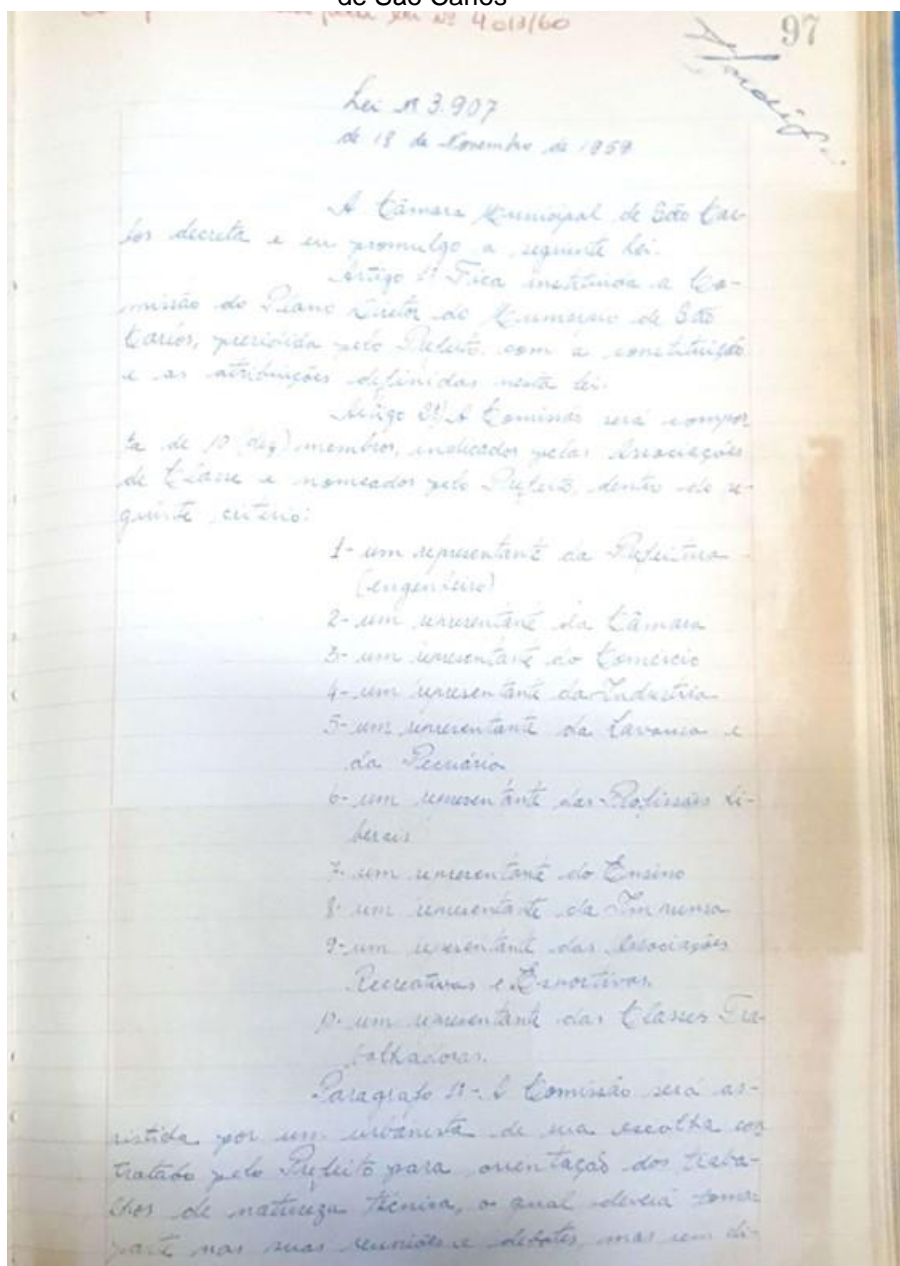 de São Carlos
pela Lei Nº 4013/60
97
Lei Nº 3.907
de 18 de Novembro de 1959
A Câmara Municipal de São Car-
los decreta e eu promulgo a seguinte lei.
Artigo 1º Fica instituida a Co-
missão do Plano Diretor do Municipio de São
Carlos, presidida pelo Prefeito, com a constituição
e as atribuições definidas nesta lei.
Artigo 2º A Comissão será compos
ta de 10 (dez) membros, indicados pelas Associações
de Classe e nomeados pelo Prefeito, dentro do se-
guinte criterio:
1- um representante da Prefeitura
(engenheiro)
2- um representante da Câmara
3- um representante do Comercio
4- um representante da Industria
5- um representante da Lavoura e
da Pecuária
6- um representante das Profissões Li-
berais
7- um representante do Ensino
8- um representante da Imprensa
9- um representante das Associações
Recreativas e Esportivas.
10- um representante das Classes Tra-
balhadoras.
Paragrafo 1º- A Comissão será as-
sistida por um urbanista de sua escolha con
tratado pelo Prefeito para orientação dos traba-
lhos de natureza técnica, o qual deverá tomar
parte nas suas reuniões e debates, mas sem di-